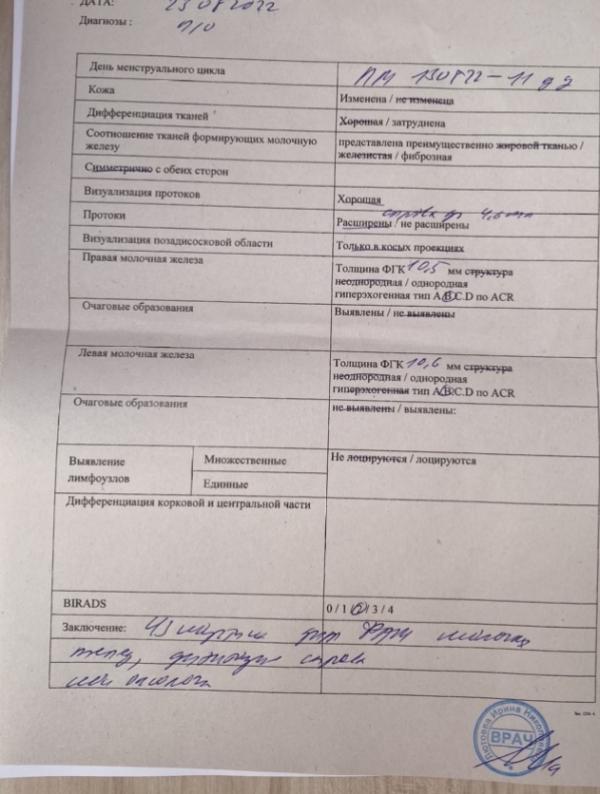 ДАТА: 23 08 2022
Диагнозы : п/о
День менструального цикла ПМ 130822 – 11
Кожа Изменена / не изменена
Дифференциация тканей Хорошая / затруднена
Соотношение тканей формирующих молочную представлена преимущественно жировой тканью /
железу железистая / фиброзная
Симметрично с обеих сторон
Визуализация протоков Хорошая
справа до 4,6 мм
Протоки Расширены / не расширены
Визуализация позадисосковой области Только в косых проекциях
Правая молочная железа Толщина ФГК 10,5 мм структура
неоднородная / однородная
гиперэхогенная тип A,B,C.D по ACR
Очаговые образования Выявлены / не выявлены
Левая молочная железа Толщина ФГК 10,6 мм структура
неоднородная / однородная
гиперэхогенная тип A,B,C.D по ACR
Очаговые образования не выявлены / выявлены:
Выявление лимфоузлов Множественные Не лоцируются / лоцируются
Единные
Дифференциация корковой и центральной части
BIRADS 0 / 1 /2/ 3 / 4
Заключение: УЗ картина ФКМ молочных
желез, справа
ВРАЧ
Ирина